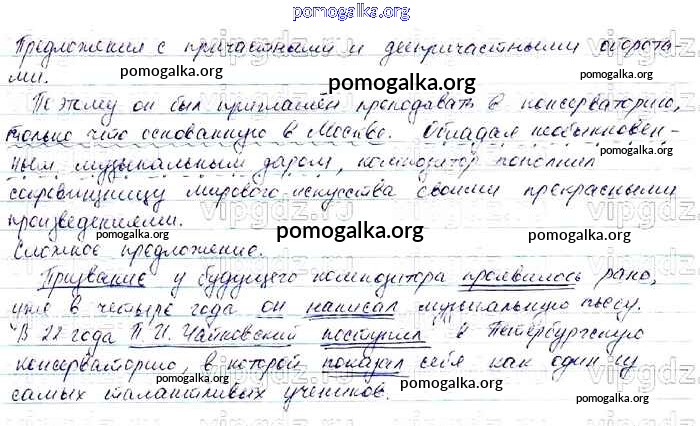 pomogalka.org
Предложения с причастными и деепричастными оборота-
ми.
pomogalka.org
pomogalka.org
pomogalka.org
Поэтому он был приглашён преподавать в консерваторию,
только что основанную в Москве. Обладая необыкновен-
ным музыкальным даром, композитор пополнил
pomogalka.org
сокровищницу мирового искусства своими прекрасными
произведениями.
pomogalka.org
pomogalka.org
pomogalka.org
Сложное предложение.
Призвание у будущего композитора проявилось рано,
уже в четыре года он написал музыкальную пьесу.
В 22 года П. И. Чайковский поступил в Петербургскую
консерваторию, в которой показал себя как один из
самых талантливых учеников.
pomogalka.org
pomogalka.org
pomogalka.org
vipgdz.ru